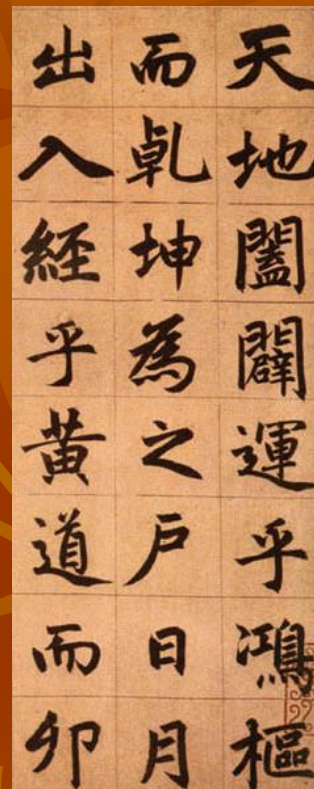 天地闔闢運乎鴻樞
而乹坤為之戶日月
出入經乎黃道而卯